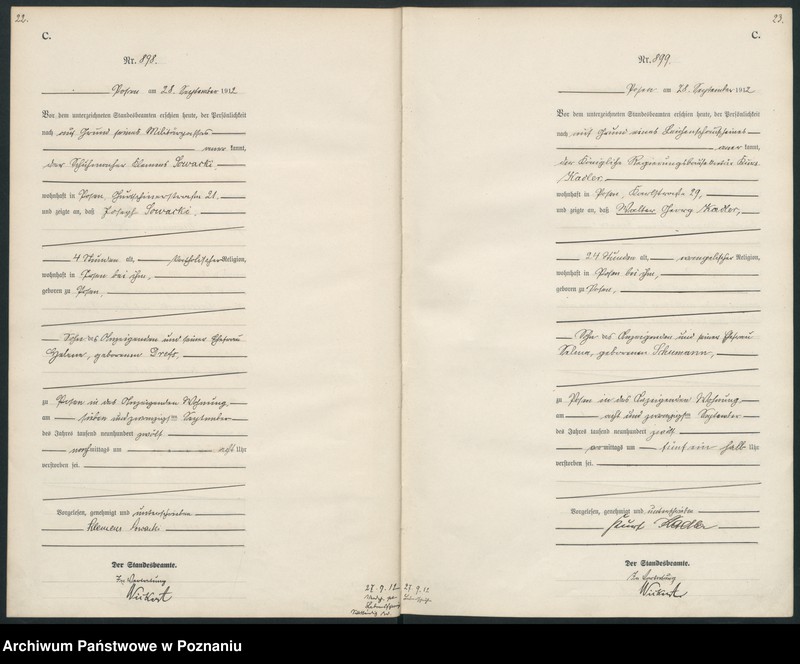 22.
C.
Nr. 898.
Posen am 28. September 1912
Vor dem unterzeichneten Standesbeamten erschien heute, der Persönlichkeit
nach auf Grund seines Militärpasses
aner kannt,
der Schuhmacher Klemens Nowacki,
wohnhaft in Posen, 21.
und zeigte an, daß Joseph Nowacki,
4 Stunden alt, katholischer Religion,
wohnhaft in Posen bei ihm,
geboren zu Posen,
Sohn des Anzeigenden und seiner Ehefrau
Helene, geborenen
zu Posen in des Anzeigenden Wohnung
am sieben und zwanzigsten September
des Jahres tausend neunhundert zwölf
nachmittags um acht Uhr
verstorben sei.
Vorgelesen, genehmigt und unterschrieben
Klemens Nowacki
Der Standesbeamte.
In Vertretung
27.9.12
23.
C.
Nr. 899.
Posen am 28. September 1912
Vor dem unterzeichneten Standesbeamten erschien heute, der Persönlichkeit
nach auf Grund eines Leichenschauscheines
aner kannt,
der Königliche Kurt
Kadler,
wohnhaft in Posen, 29,
und zeigte an, daß Walter Georg Kadler,
24 Stunden alt, evangelischer Religion,
wohnhaft in Posen bei ihm,
geboren zu Posen,
Sohn des Anzeigenden und seiner Ehefrau
Selma, geborenen Schumann,
zu Posen in des Anzeigenden Wohnung
am acht und zwanzigsten September
des Jahres tausend neunhundert zwölf
vormittags um fünf ein halb Uhr
verstorben sei.
Vorgelesen, genehmigt und unterschrieben
Kurt Kadler
Der Standesbeamte.
In Vertretung
27.9.12
Archiwum Państwowe w Poznaniu